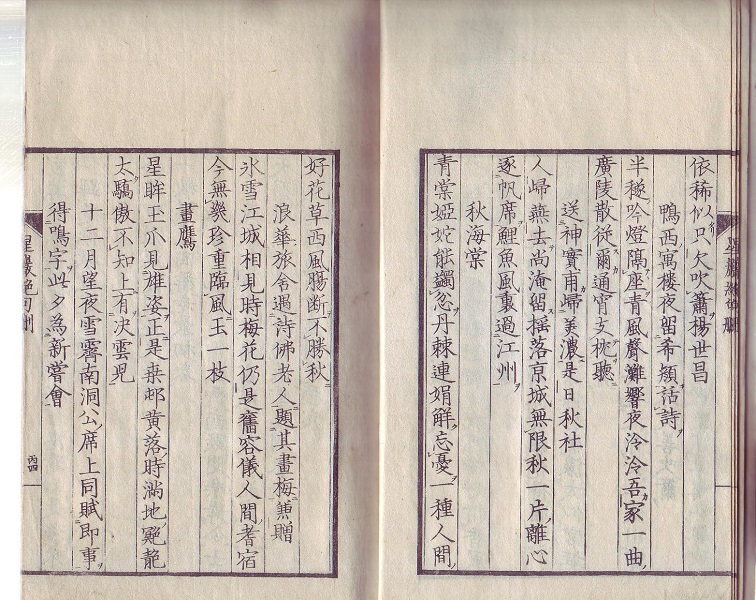 依稀似只欠吹簫楊世昌
鴨西寓樓夜留希頬話詩
半穟吟燈隔座青風聲灘響夜泠泠吾家一曲
廣陵散従爾通宵支枕聽
送神實甫歸美濃是日秋社
人歸燕去尚淹留揺落京城無限秋一片離心
逐帆席鯉魚風裏過江州
秋海棠
青棠婭姹能蠲忿丹棘連娟解忘憂一種人間
好花草西風腸断不勝秋
浪華旅舎遇詩佛老人題其畫梅兼贈
氷雪江城相見時梅花仍是舊容儀人間耆宿
今無幾珍重臨風玉一枝
畫鷹
星眸玉爪見雄姿正是桒邨黄落時満地
太驕傲不知上有決雲児
十二月望夜雪霽南洞公席上同賦即事
得鳴字此夕為新嘗會
星巖絶句刪